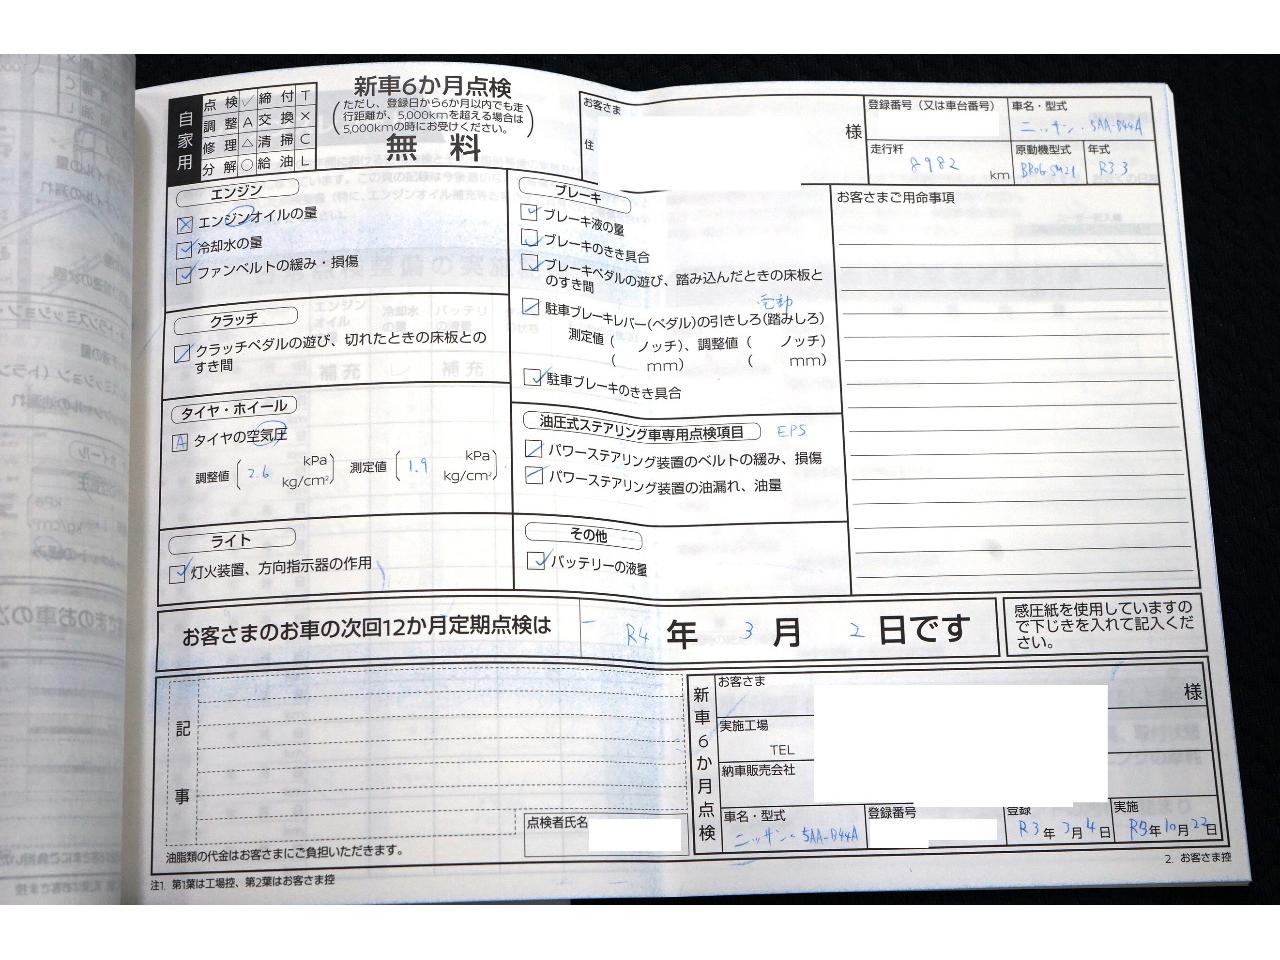 自家用
点検 ✓ 締付 T
調整 A 交換 ×
修理 △ 清掃 C
分解 ○ 給油 L
新車6か月点検
(ただし、登録日から6か月以内でも走
行距離が、5,000kmを超える場合は
5,000kmの時にお受けください。)
無料
お客さま
様
住
登録番号(又は車台番号)
車名・型式
ニッサン・5AA-B44A
走行粁
8982 km
原動機型式
BR06 SM21
年式
R3.3
エンジン
エンジンオイルの量
冷却水の量
ファンベルトの緩み・損傷
クラッチ
クラッチペダルの遊び、切れたときの床板との
すき間
タイヤ・ホイール
A タイヤの空気圧
調整値 ( 2.6 kPa kg/cm² ) 測定値 ( 1.9 kPa kg/cm² )
ライト
灯火装置、方向指示器の作用
ブレーキ
ブレーキ液の量
ブレーキのきき具合
ブレーキペダルの遊び、踏み込んだときの床板と
のすき間
電動
駐車ブレーキレバー(ペダル)の引きしろ(踏みしろ)
測定値 ( ノッチ)、調整値 ( ノッチ)
( mm) ( mm)
駐車ブレーキのきき具合
油圧式ステアリング車専用点検項目 EPS
パワーステアリング装置のベルトの緩み、損傷
パワーステアリング装置の油漏れ、油量
その他
バッテリーの液量
お客さまご用命事項
お客さまのお車の次回12か月定期点検は R4 年 3 月 2 日です
感圧紙を使用していますの
で下じきを入れて記入くだ
さい。
記事
点検者氏名
油脂類の代金はお客さまにご負担いただきます。
新車6か月点検
お客さま
様
実施工場
TEL
納車販売会社
車名・型式
ニッサン・5AA-B44A
登録番号
登録
R3年3月4日
実施
R3年10月22日
注1. 第1葉は工場控、第2葉はお客さま控
2. お客さま控